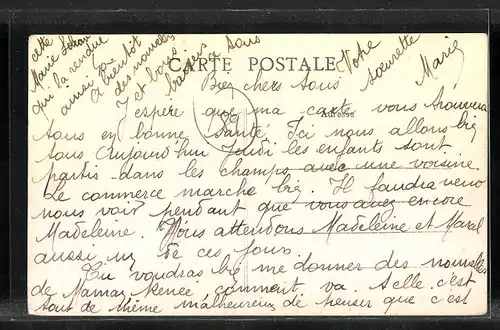 CARTE POSTALE
Adresse
Bien chers tous
J'espère que ma carte vous trouvera
tous en bonne santé Ici nous allons bien
tous Aujourd'hui Jeudi les enfants sont
partis dans les champs avec une voisine.
Le commerce marche bien. Il faudra venir
nous voir pendant que vous avez encore
Madeleine. Nous attendons Madeleine et Marcel
aussi un de ces jours
Tu voudras bien me donner des nouvelles
de Maman Renée comment va. t elle. c'est
tout de même malheureux de penser que c'est
cette
Marie
qui la rendue
aussi
A bientôt
des nouvelles
et bons
baisers à tous
Votre
sœurette
Marie